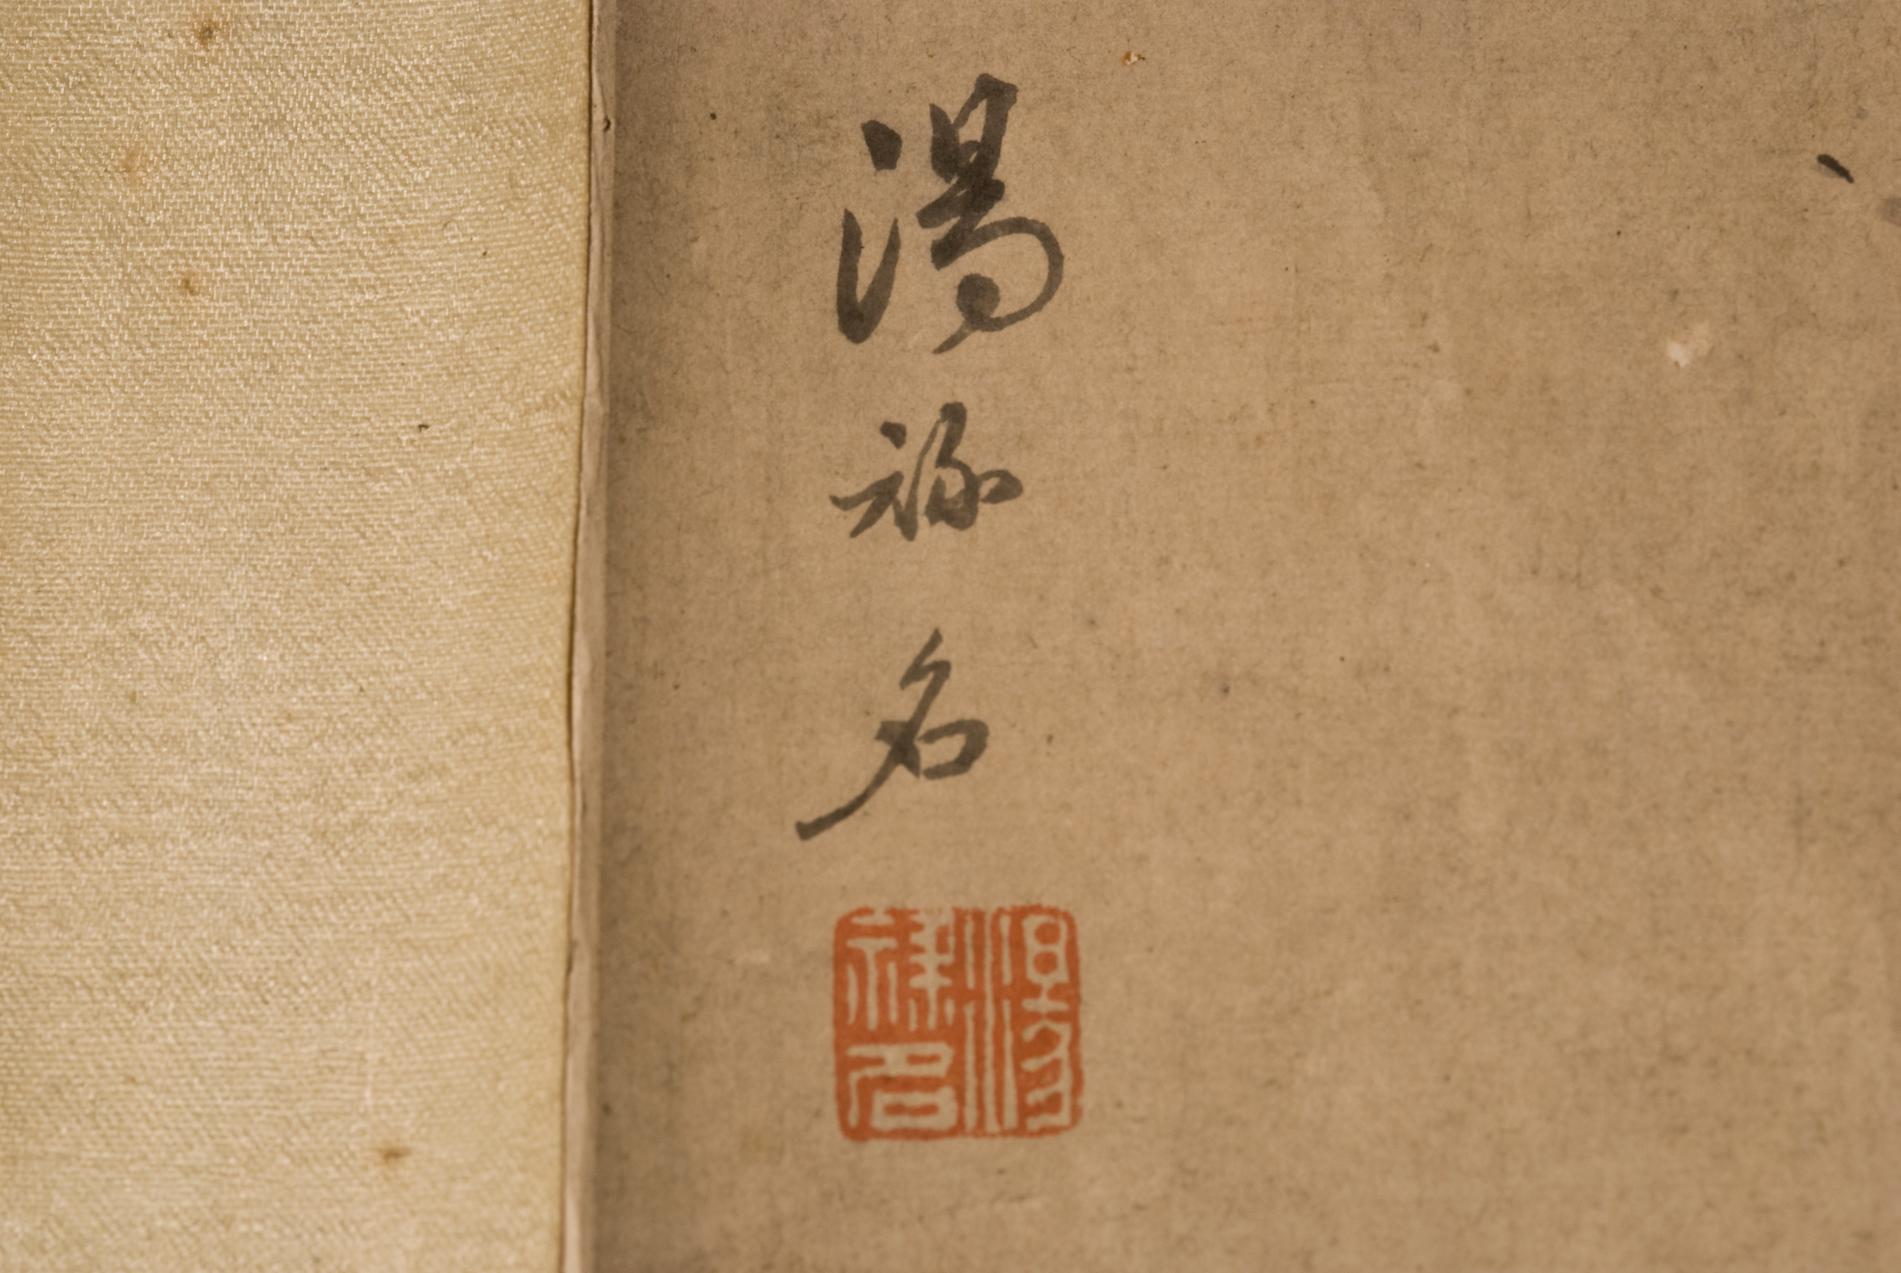 湯祿名
湯祿名